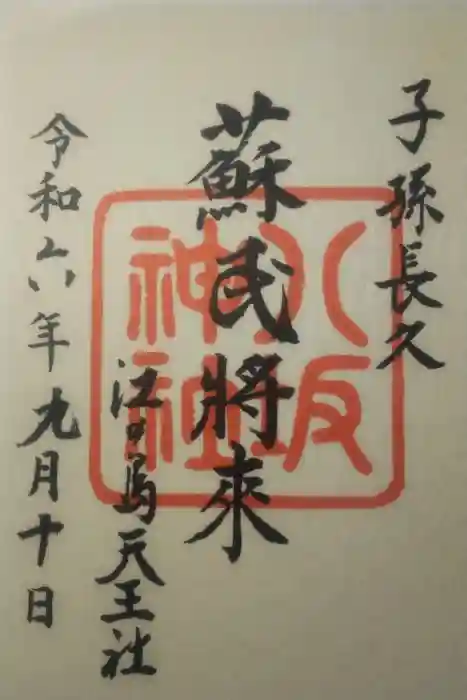 子孫長久
蘇民將來
江の島天王社
令和六年九月十日
八坂
神社